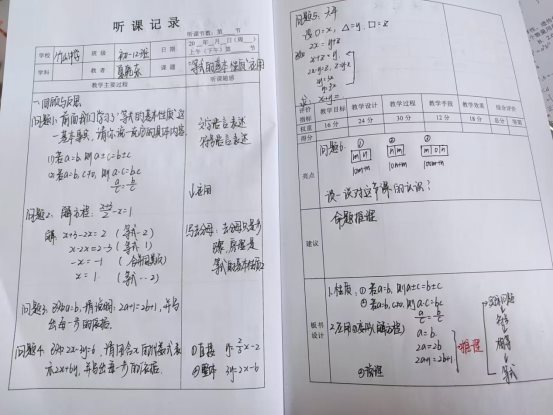 听课记录
听课节数：第 节
20 年 月 日（周 ）
上午（下午）第 节
学校 竹山中学 班级 初一12班 日期
学科 教者 课题 "等式的基本性质"应用
教学主要过程 听课随感
一、回顾与反思
问题1：前面我们学习了"等式的基本性质"这
一基本事实，请你说一说它的具体内容
(1)若a=b，则a±c=b±c
(2)若a=b，c≠0，则a·c=b·c
a/c=b/c
文字语言表述
符号语言表述
应用
问题2、解方程：(x+3)/2-x=1
解：x+3-2x=2（等式·2）
x-2x=2-3（等式1）
-x=-1（合并同类项）
x=1（等式·2）
与去分母：去分母只是步
骤，原理是
等式的基本性质2
问题3、已知a=b，请说明：2a+1=2b+1，并写
出每一步的依据。
问题4、已知2x-3y=6，请用含x的代数式表
示2x+6y，并写出每一步的依据。
①直接 y=2/3x-2
②整体 3y=2x-6
问题5：天平
设○=x，△=y，□=z
2x=y+z
x+z=y
x+y=
评价指标 教学目标 教学设计 教学过程 教学手段 教学效果 综合评价
权重 16分 24分 30分 12分 18分 总分 等第
得分
亮点
问题6、
① ② ③
m n n m m 0 n
10m+n 10n+m 100m+n
说一说对这节课的认识？
建议
命题推理
板书设计
1.性质：①若a=b，则a±c=b±c
②若a=b，c≠0，则a·c=b·c
a/c=b/c
2.应用①变形（解方程）
a=b
2a=2b
2a+1=2b+1
推理
②推理
实际问题
方程
等式